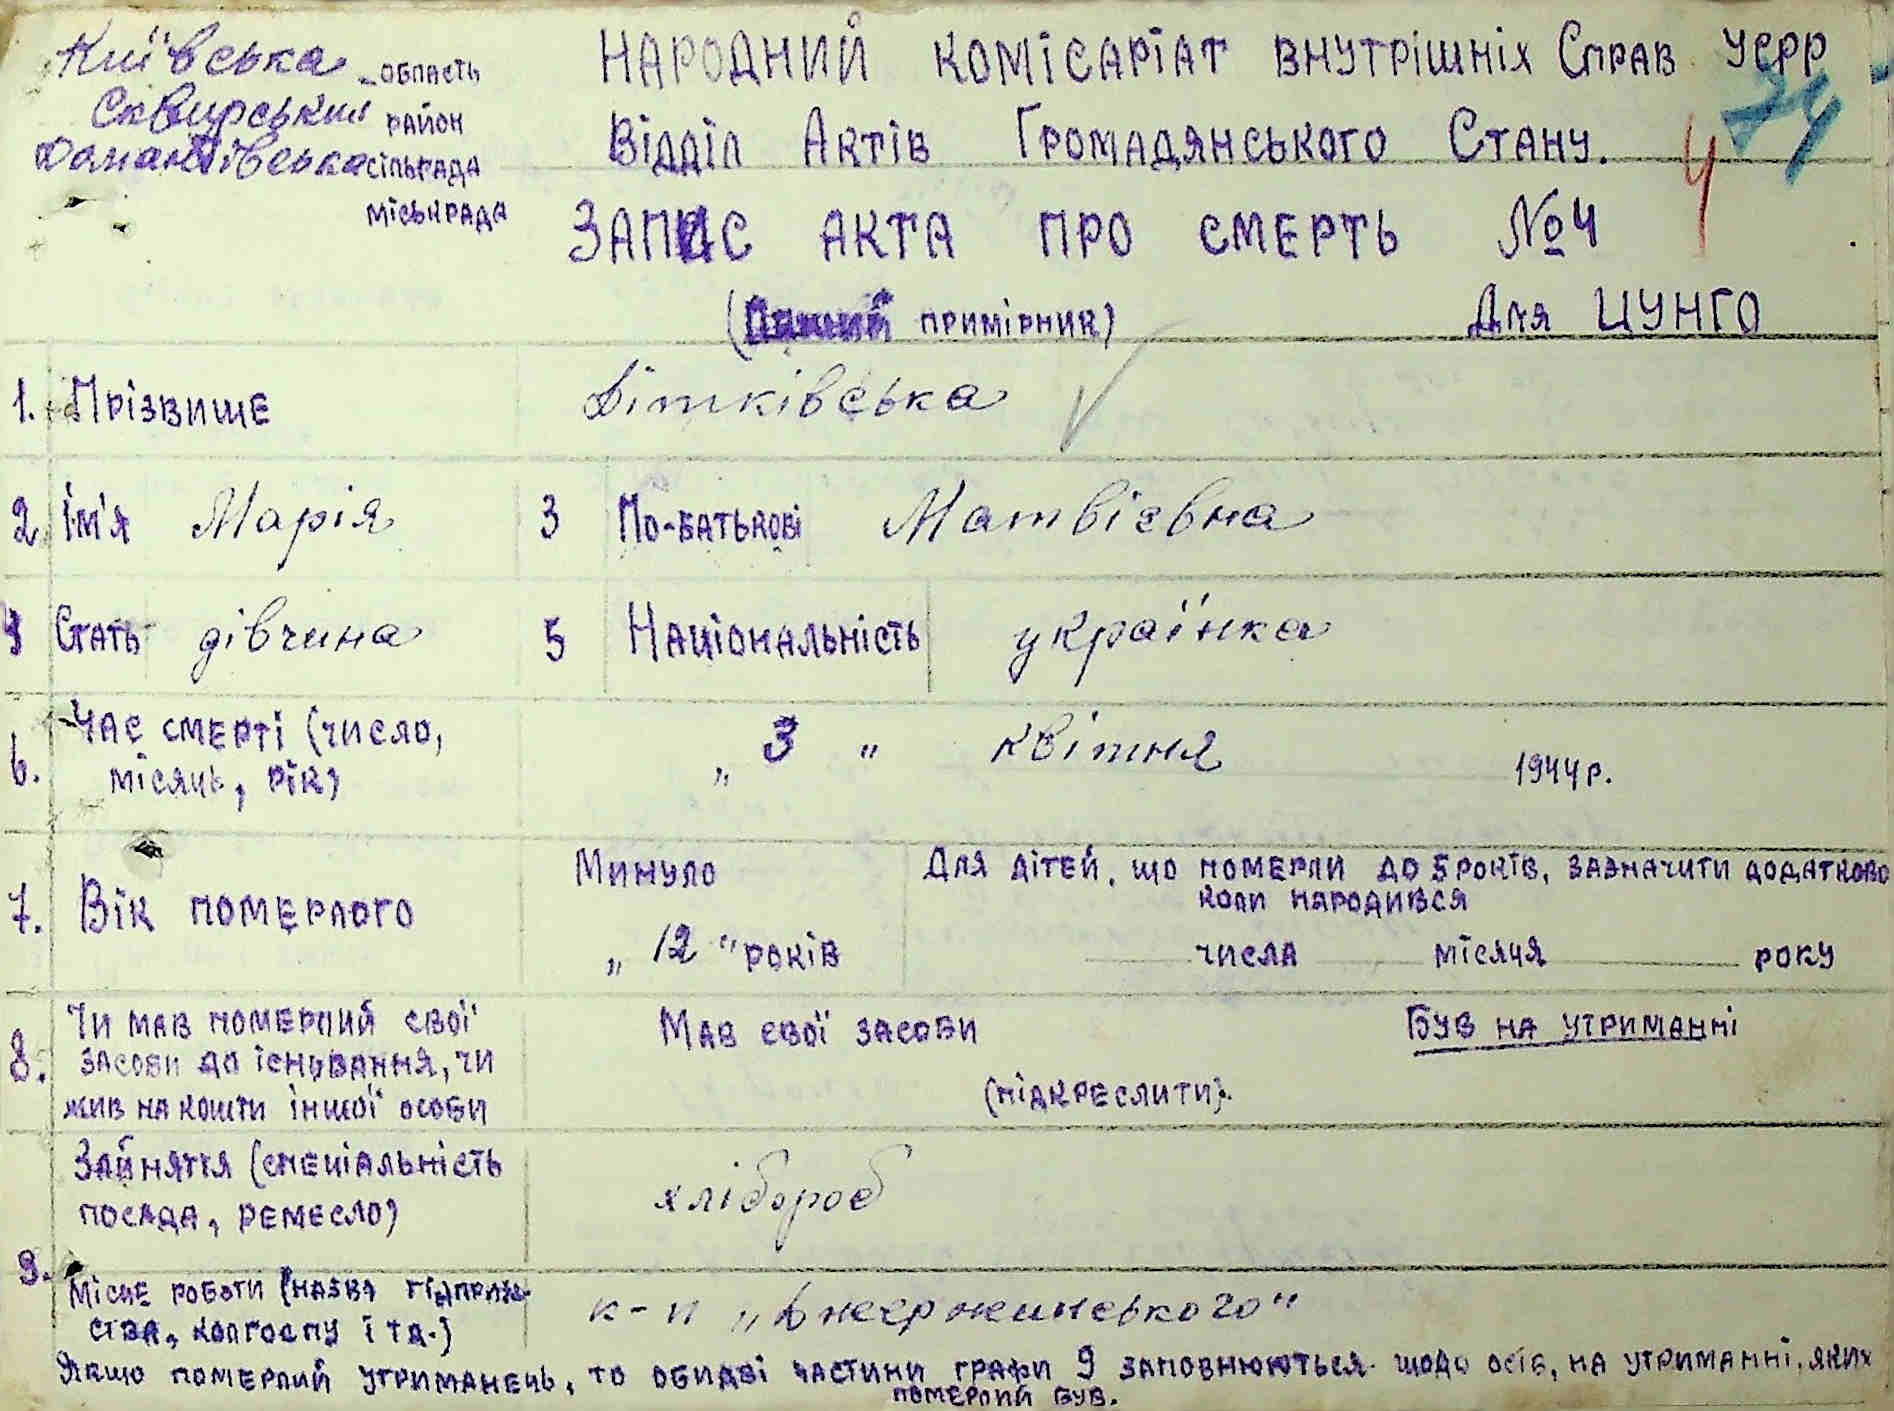 Київська область
Сквирський район
Домантівська сільрада
міськрада
Народний комісаріат внутрішніх справ УСРР
Відділ Актів Громадянського Стану.
74
4
Запис акта про смерть №4
( примірник) Для ЦУНГО
1. Прізвище Дітківська
2. Ім'я Марія 3 По-батькові Матвієвна
4 Стать дівчина 5 Національність українка
6. Час смерті (число, місяць, рік) „ 3 " квітня 1944р.
7. Вік померлого Минуло „ 12 " років
Для дітей, що померли до 5 років, зазначити додатково
коли народився
числа місяця року
8. Чи мав померлий свої
засоби до існування, чи
жив на кошти іншої особи
Мав свої засоби Був на утриманні
(підкреслити).
9. Зайняття (спеціальність
посада, ремесло) хлібороб
Місце роботи (назва підприєм-
ства, колгоспу і т.д.) к-п „Джержинського"
Якщо померлий утриманець, то обидві частини графи 9 заповнюються щодо осіб, на утриманні, яких
померлий був.